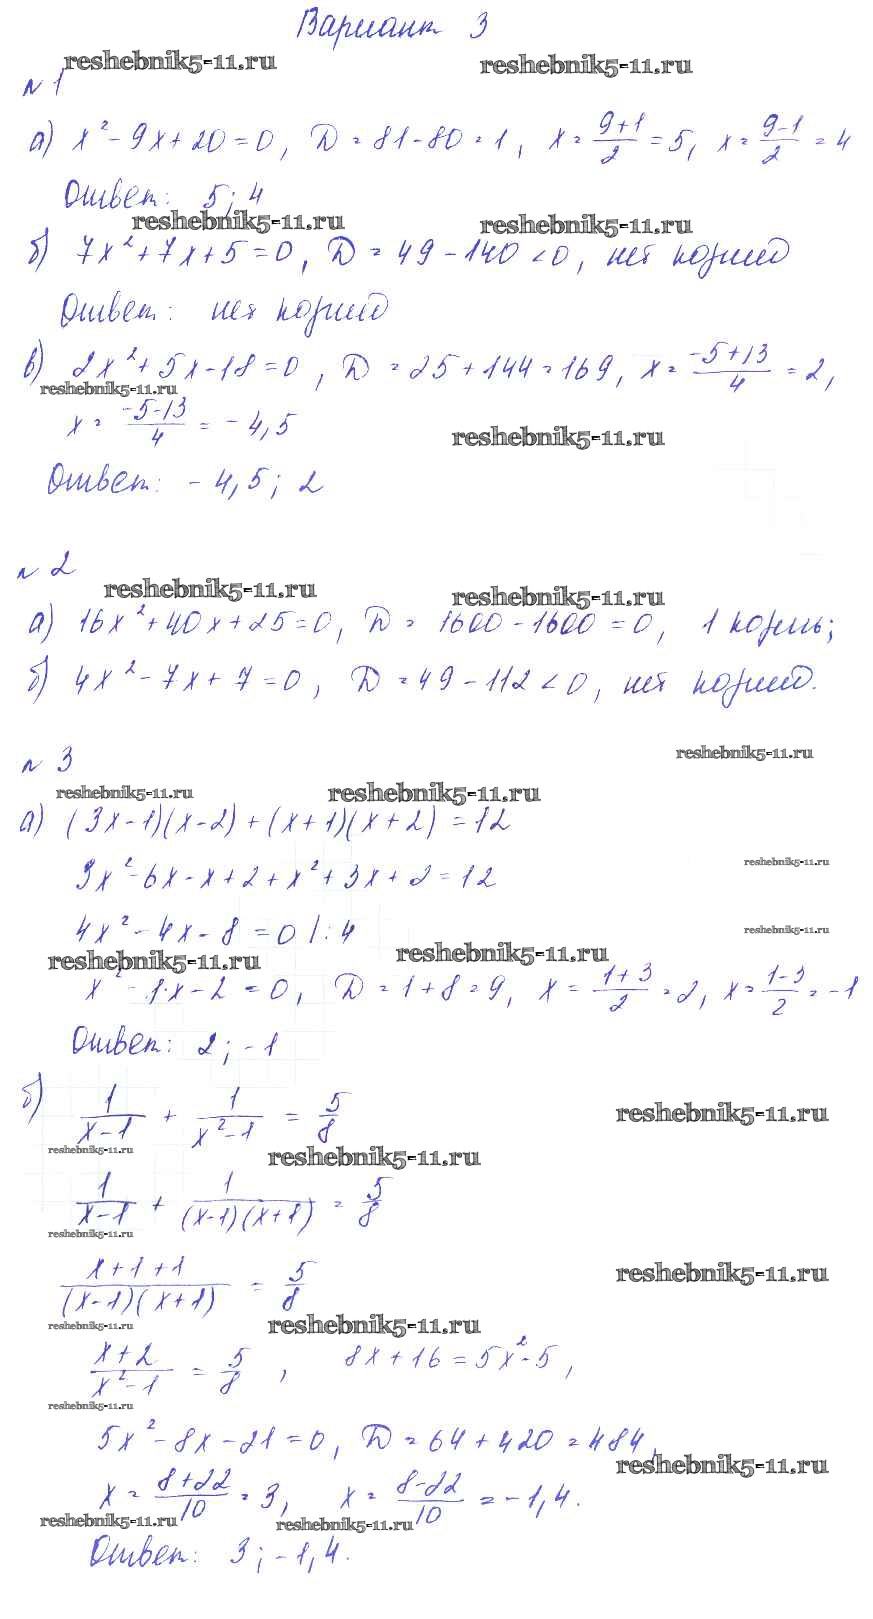 Вариант 3
reshebnik5-11.ru reshebnik5-11.ru
№1
а) x² - 9x + 20 = 0, D = 81 - 80 = 1, x = (9+1)/2 = 5, x = (9-1)/2 = 4
Ответ: 5; 4
reshebnik5-11.ru reshebnik5-11.ru
б) 7x² + 7x + 5 = 0, D = 49 - 140 < 0, нет корней
Ответ: нет корней
в) 2x² + 5x - 18 = 0, D = 25 + 144 = 169, x = (-5+13)/4 = 2,
reshebnik5-11.ru
x = (-5-13)/4 = -4,5
reshebnik5-11.ru
Ответ: -4,5; 2
№2
reshebnik5-11.ru reshebnik5-11.ru
а) 16x² + 40x + 25 = 0, D = 1600 - 1600 = 0, 1 корень;
б) 4x² - 7x + 7 = 0, D = 49 - 112 < 0, нет корней.
№3
reshebnik5-11.ru
reshebnik5-11.ru reshebnik5-11.ru
а) (3x-1)(x-2) + (x+1)(x+2) = 12
reshebnik5-11.ru
3x² - 6x - x + 2 + x² + 3x + 2 = 12
4x² - 4x - 8 = 0 |: 4
reshebnik5-11.ru
reshebnik5-11.ru reshebnik5-11.ru
x² - 1·x - 2 = 0, D = 1 + 8 = 9, x = (1+3)/2 = 2, x = (1-3)/2 = -1
Ответ: 2; -1
б) 1/(x-1) + 1/(x²-1) = 5/8
reshebnik5-11.ru
reshebnik5-11.ru reshebnik5-11.ru
1/(x-1) + 1/((x-1)(x+1)) = 5/8
reshebnik5-11.ru
(x+1+1)/((x-1)(x+1)) = 5/8
reshebnik5-11.ru
reshebnik5-11.ru reshebnik5-11.ru
(x+2)/(x²-1) = 5/8, 8x + 16 = 5x² - 5,
reshebnik5-11.ru
5x² - 8x - 21 = 0, D = 64 + 420 = 484,
reshebnik5-11.ru
x = (8+22)/10 = 3, x = (8-22)/10 = -1,4.
reshebnik5-11.ru reshebnik5-11.ru
Ответ: 3; -1,4.